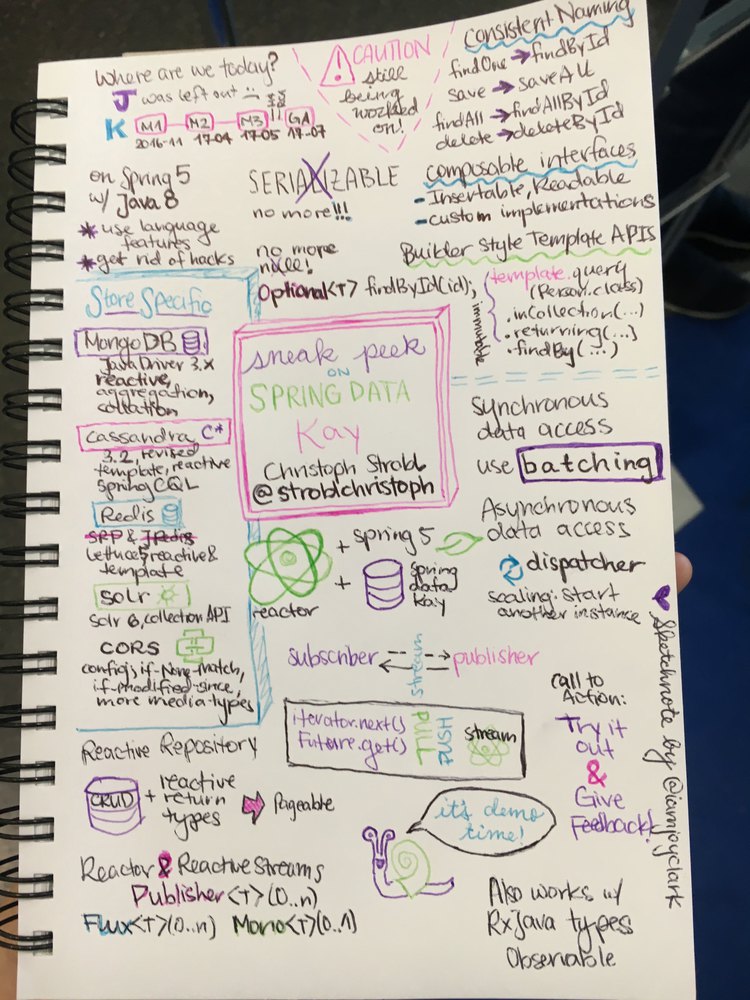 Where are we today?
J was left out :(
K M1 M2 M3 GA
2016-11 17-04 17-05 17-07
CAUTION
still
being
worked
on!
Consistent Naming
findOne → findById
save → saveAll
findAll → findAllById
delete → deleteById
on Spring 5
w/ Java 8
* use language
features
* get rid of hacks
SERIALIZABLE
no more!!!
no more
null!
Optional<T> findById(id);
composable interfaces
- Insertable, Readable
- custom implementations
Builder Style Template APIs
immutable
template.query
(Person.class)
.inCollection(...)
.returning(...)
.findBy(...)
Store Specific
MongoDB
Java Driver 3.x
reactive,
aggregation,
collation
Cassandra C*
3.2, revised
template, reactive
Spring CQL
Redis
SRP & Jredis
Lettuce5 reactive &
template
Solr
Solr 6, collection API
CORS
config, if-None-match,
if-modified-since,
more media-types
sneak peek
ON
SPRING DATA
Kay
Christoph Strobl
@stroblchristoph
Synchronous
data access
use batching
Asynchronous
data access
dispatcher
scaling: start
another instance
reactor
+ spring 5
+ spring
data
Kay
subscriber publisher
stream
iterator.next()
Future.get()
PULL
PUSH
stream
Call to
Action:
Try it
out
&
Give
Feedback!
Reactive Repository
CRUD + reactive
return
types → Pageable
it's demo
time!
Reactor & Reactive Streams
Publisher<T>(0..n)
Flux<T>(0..n) Mono<T>(0..1)
Also works w/
RxJava types
Observable
Sketchnote by @iamjoyclark